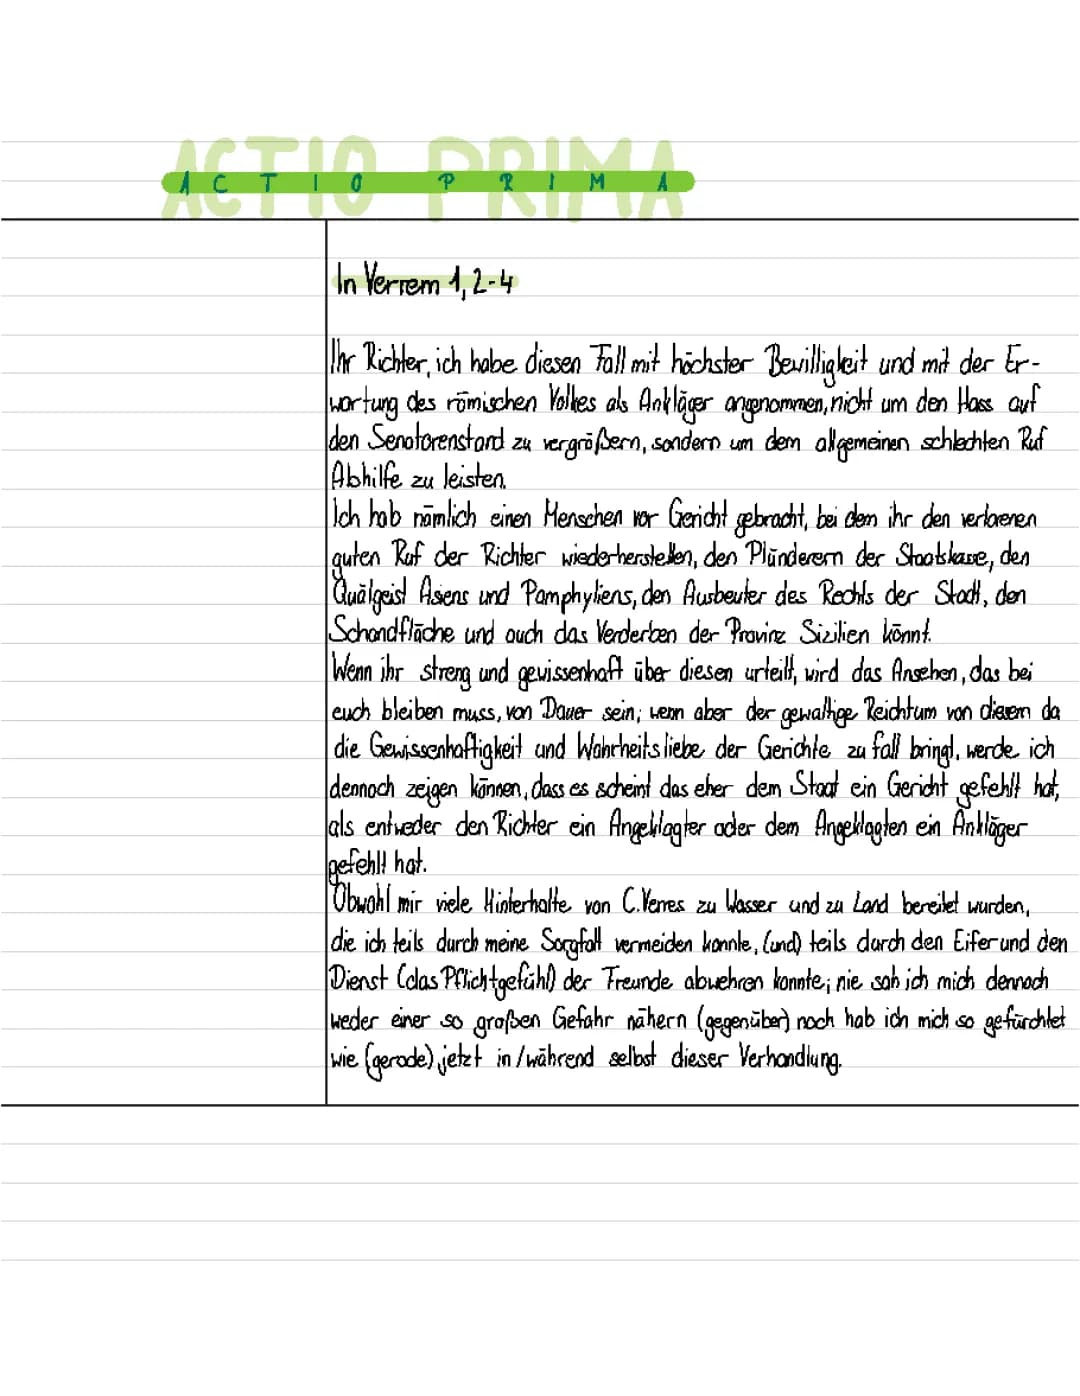 ACTIO PRIMA
A C T I O P R I M A
In Verrem 1, 2-4
Ihr Richter, ich habe diesen Fall mit höchster Bewilligkeit und mit der Er-
wartung des römischen Volkes als Ankläger angenommen, nicht um den Hass auf
den Senatorenstand zu vergrößern, sondern um dem allgemeinen schlechten Ruf
Abhilfe zu leisten.
Ich hab nämlich einen Menschen vor Gericht gebracht, bei dem ihr den verlorenen
guten Ruf der Richter wiederherstellen, den Plünderern der Staatskasse, den
Quälgeist Asiens und Pamphyliens, den Ausbeuter des Rechts der Stadt, den
Schandfläche und auch das Verderben der Provinz Sizilien könnt.
Wenn ihr streng und gewissenhaft über diesen urteilt, wird das Ansehen, das bei
euch bleiben muss, von Dauer sein; wenn aber der gewaltige Reichtum von diesem da
die Gewissenhaftigkeit und Wahrheitsliebe der Gerichte zu fall bringt, werde ich
dennoch zeigen können, dass es scheint das eher dem Staat ein Gericht gefehlt hat,
als entweder den Richter ein Angeklagter oder dem Angeklagten ein Ankläger
gefehlt hat.
Obwohl mir viele Hinterhalte von C. Verres zu Wasser und zu Land bereitet wurden,
die ich teils durch meine Sorgfalt vermeiden konnte, (und) teils durch den Eifer und den
Dienst (das Pflichtgefühl) der Freunde abwehren konnte; nie sah ich mich dennoch
weder einer so großen Gefahr nähern (gegenüber) noch hab ich mich so gefürchtet
wie (gerade) jetzt in/während selbst dieser Verhandlung.